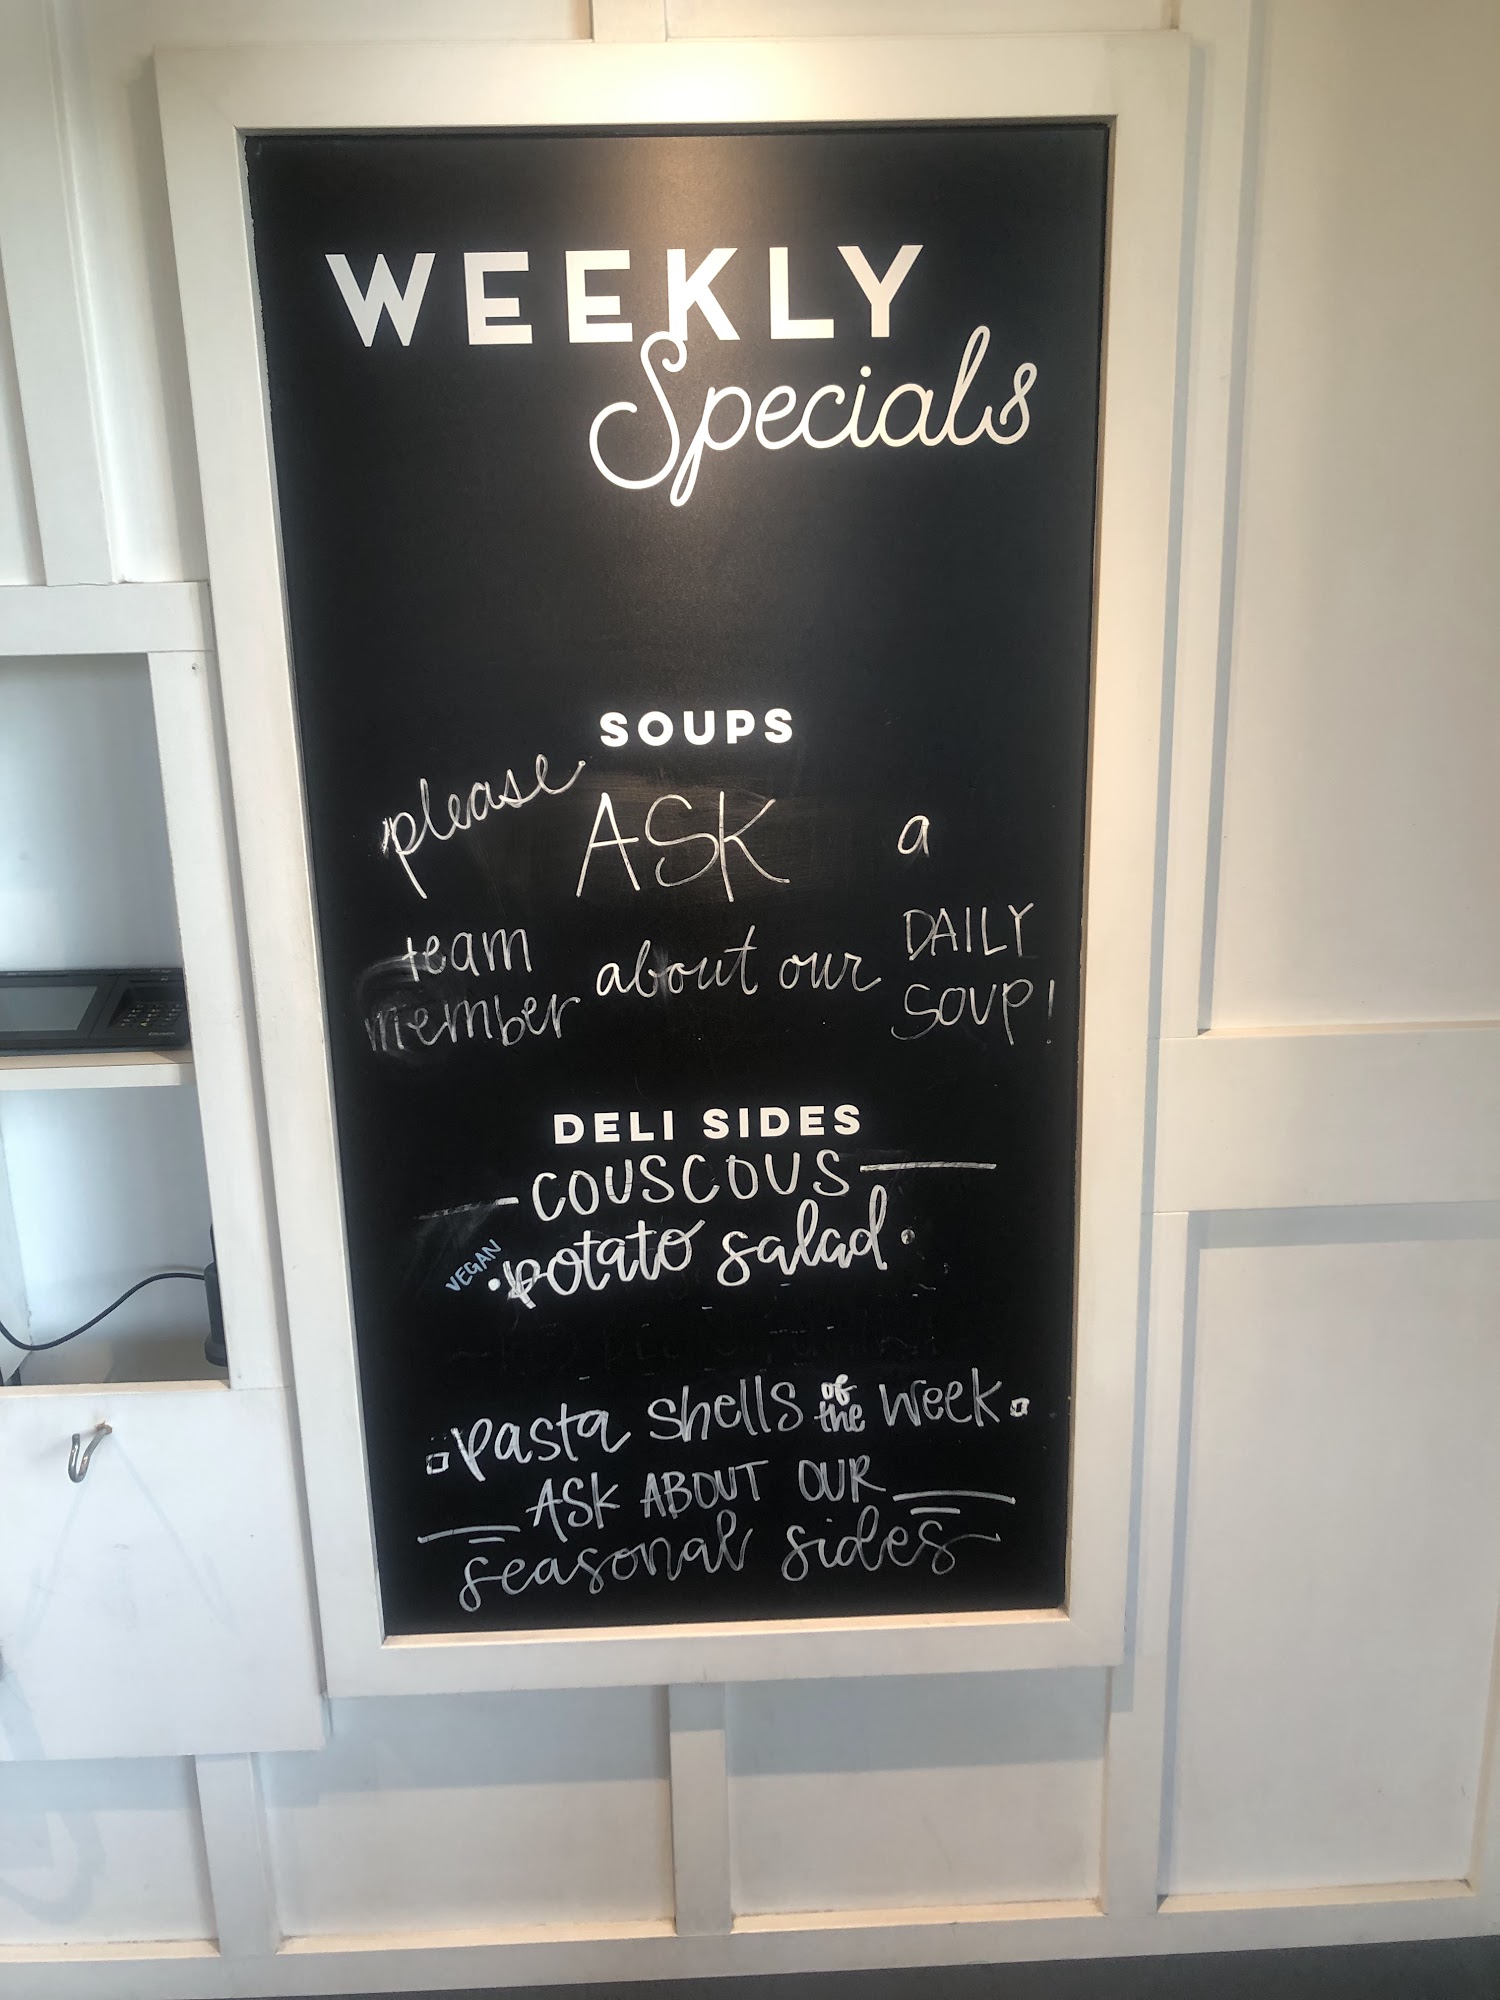 WEEKLY
Specials
SOUPS
please ASK a
team member about our DAILY SOUP!
DELI SIDES
COUSCOUS
VEGAN potato salad
pasta shells of the week
ASK ABOUT OUR
seasonal sides